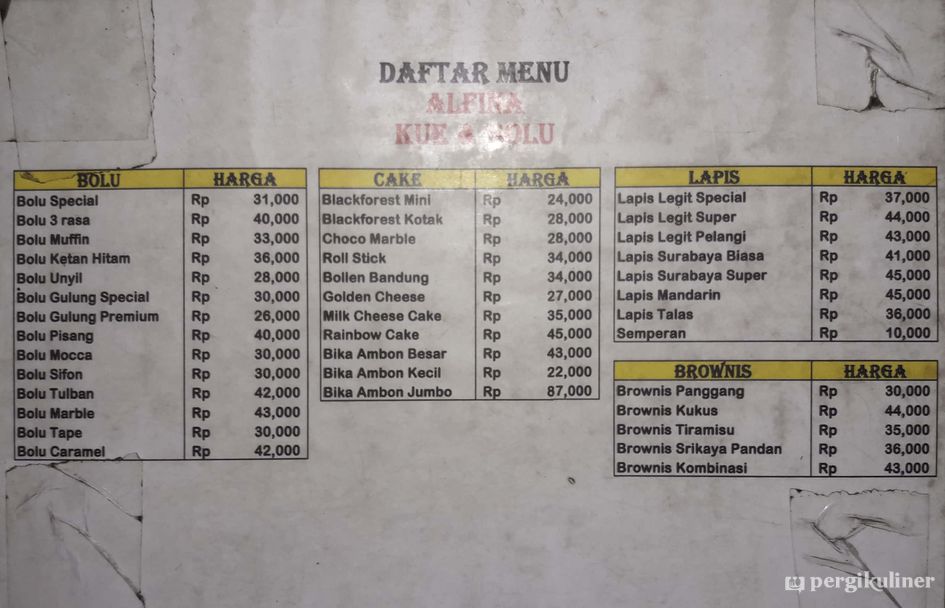 DAFTAR MENU
ALFINA
KUE & BOLU
BOLU HARGA
Bolu Special Rp 31,000
Bolu 3 rasa Rp 40,000
Bolu Muffin Rp 33,000
Bolu Ketan Hitam Rp 36,000
Bolu Unyil Rp 28,000
Bolu Gulung Special Rp 30,000
Bolu Gulung Premium Rp 26,000
Bolu Pisang Rp 40,000
Bolu Mocca Rp 30,000
Bolu Sifon Rp 30,000
Bolu Tulban Rp 42,000
Bolu Marble Rp 43,000
Bolu Tape Rp 30,000
Bolu Caramel Rp 42,000
CAKE HARGA
Blackforest Mini Rp 24,000
Blackforest Kotak Rp 28,000
Choco Marble Rp 28,000
Roll Stick Rp 34,000
Bollen Bandung Rp 34,000
Golden Cheese Rp 27,000
Milk Cheese Cake Rp 35,000
Rainbow Cake Rp 45,000
Bika Ambon Besar Rp 43,000
Bika Ambon Kecil Rp 22,000
Bika Ambon Jumbo Rp 87,000
LAPIS HARGA
Lapis Legit Special Rp 37,000
Lapis Legit Super Rp 44,000
Lapis Legit Pelangi Rp 43,000
Lapis Surabaya Biasa Rp 41,000
Lapis Surabaya Super Rp 45,000
Lapis Mandarin Rp 45,000
Lapis Talas Rp 36,000
Semperan Rp 10,000
BROWNIS HARGA
Brownis Panggang Rp 30,000
Brownis Kukus Rp 44,000
Brownis Tiramisu Rp 35,000
Brownis Srikaya Pandan Rp 36,000
Brownis Kombinasi Rp 43,000
pergikuliner